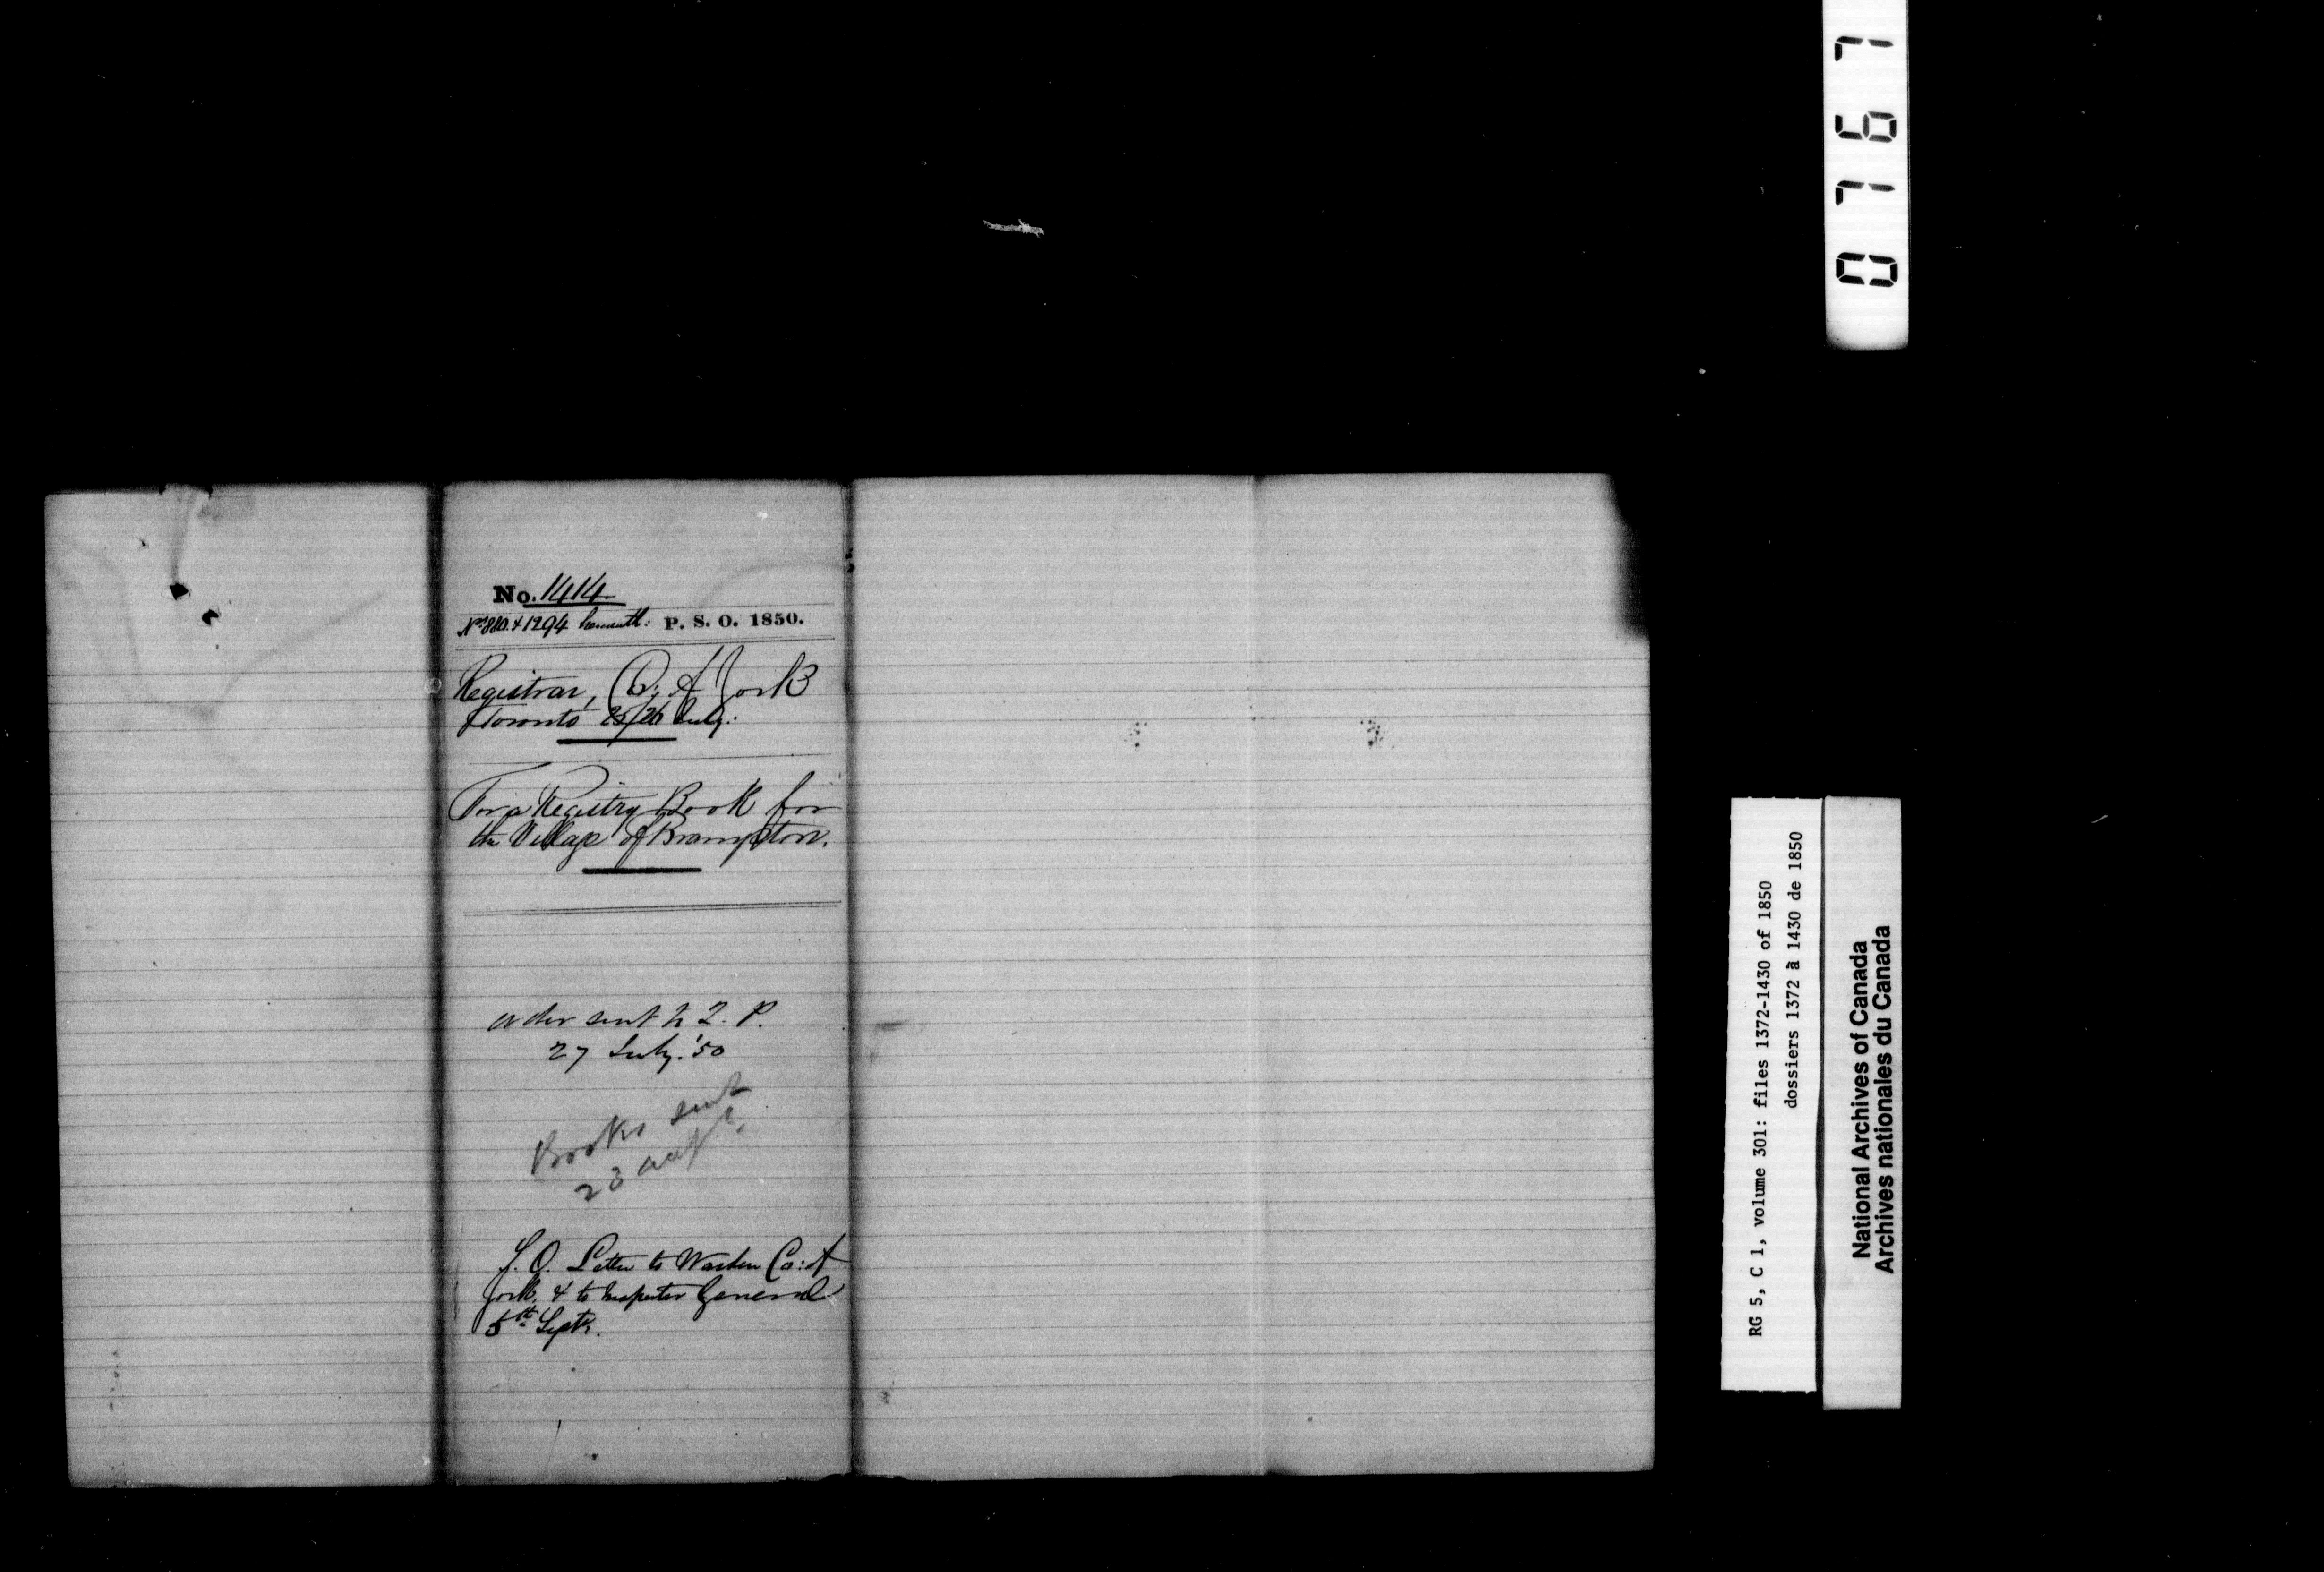 No. 1414
Nos 880 & 1294 herewith: P. S. O. 1850.
Registrar, Co: of York
Toronto 25/26 July.
For a Registry Book for
the Village of Brampton.
order sent to Q. P.
27 July. '50
Books sent
23 Augt.
L. O. Letter to Warden Co: of
York, & to Inspector General
5th Septr.
0767
RG 5, C 1, volume 301: files 1372-1430 of 1850
dossiers 1372 à 1430 de 1850
National Archives of Canada
Archives nationales du Canada